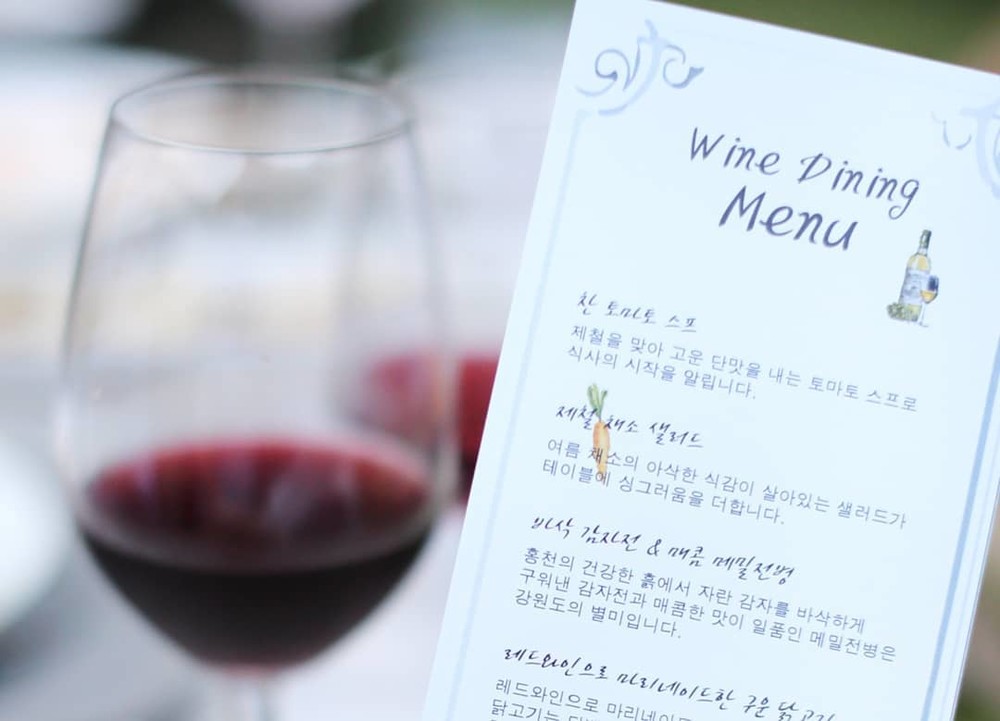 Wine Dining
Menu
찬 토마토 스프
제철을 맞아 고운 단맛을 내는 토마토 스프로
식사의 시작을 알립니다.
제철 채소 샐러드
여름 채소의 아삭한 식감이 살아있는 샐러드가
테이블에 싱그러움을 더합니다.
바삭 감자전 & 매콤 메밀전병
홍천의 건강한 흙에서 자란 감자를 바삭하게
구워낸 감자전과 매콤한 맛이 일품인 메밀전병은
강원도의 별미입니다.
레드와인으로 마리네이드한 구운 닭고기
레드와인으로
닭고기는